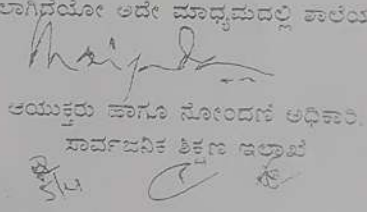 ಲಾಗಿದೆಯೋ ಅದೇ ಮಾಧ್ಯಮದಲ್ಲಿ ಶಾಲೆಯ
ಆಯುಕ್ತರು ಹಾಗೂ ನೋಂದಣಿ ಅಧಿಕಾರಿ.
ಸಾರ್ವಜನಿಕ ಶಿಕ್ಷಣ ಇಲಾಖೆ